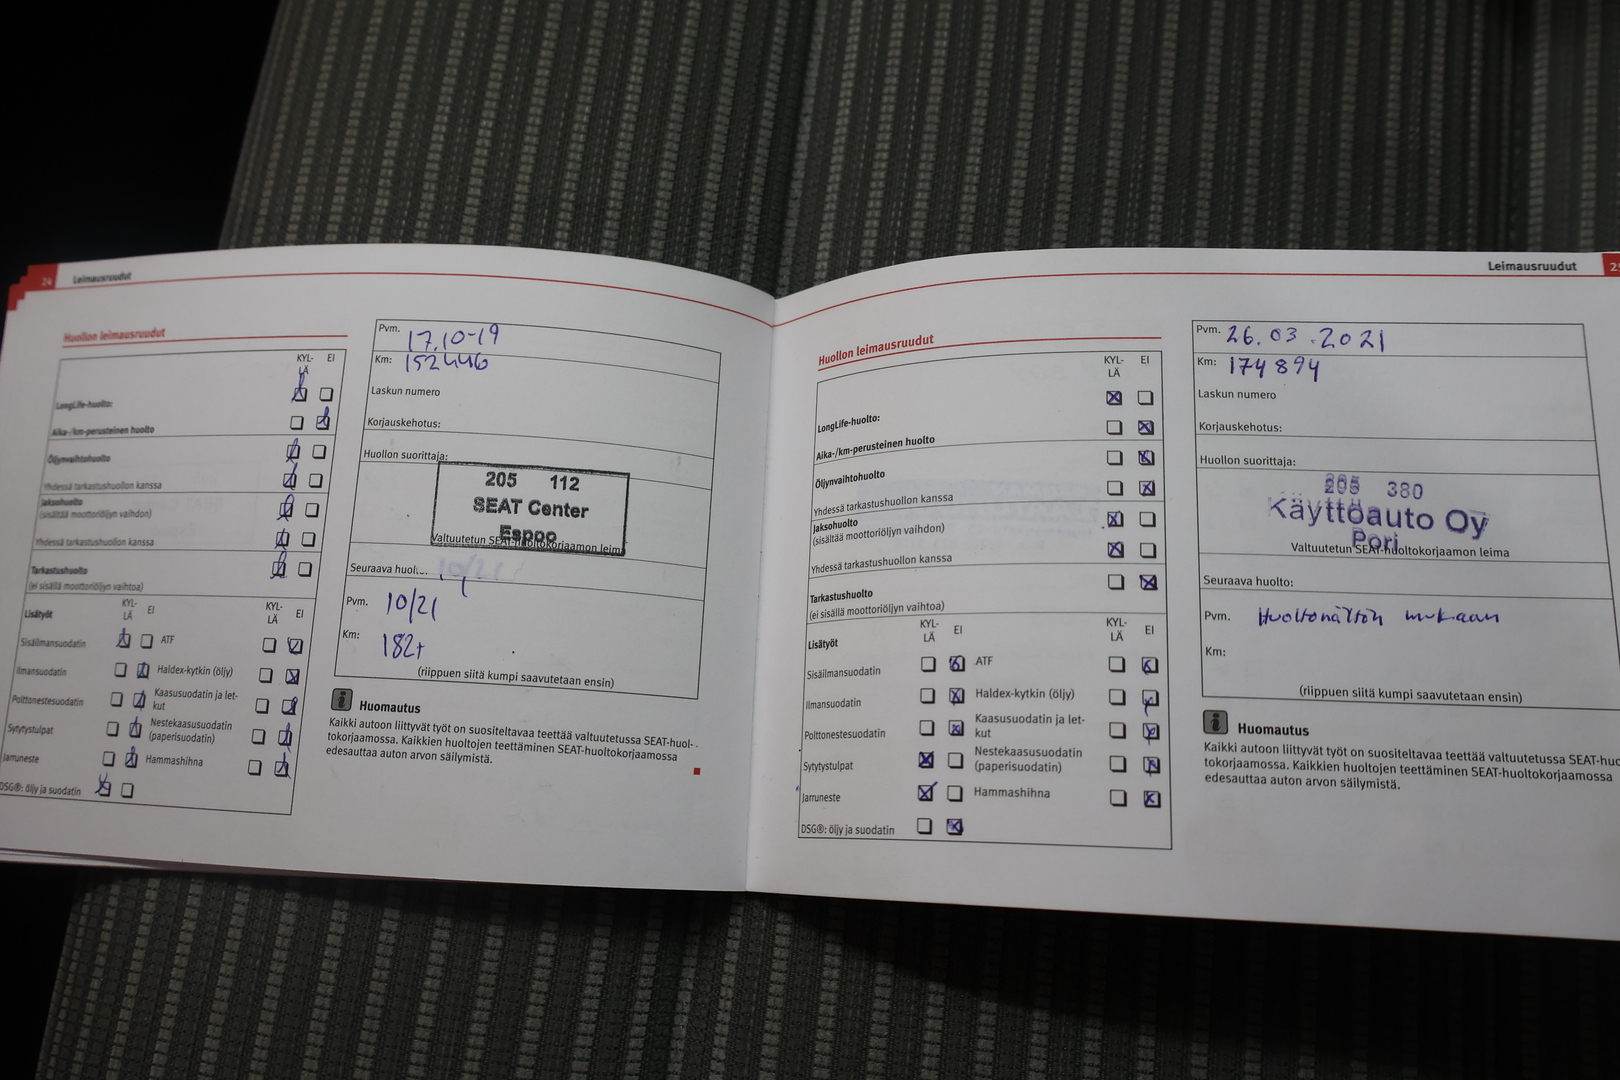 24 Leimausruudut
Huollon leimausruudut
KYL-
LÄ
EI
LongLife-huolto:
Aika-/km-perusteinen huolto
Öljynvaihtohuolto
Yhdessä tarkastushuollon kanssa
Jaksohuolto
(sisältää moottoriöljyn vaihdon)
Yhdessä tarkastushuollon kanssa
Tarkastushuolto
(ei sisällä moottoriöljyn vaihtoa)
Lisätyöt
KYL-
LÄ
EI
KYL-
LÄ
EI
Sisäilmansuodatin
ATF
Ilmansuodatin
Haldex-kytkin (öljy)
Polttonestesuodatin
Kaasusuodatin ja let-
kut
Sytytystulpat
Nestekaasusuodatin
(paperisuodatin)
Jarruneste
Hammashihna
DSG®: öljy ja suodatin
Pvm. 17.10-19
Km: 152446
Laskun numero
Korjauskehotus:
Huollon suorittaja:
205 112
SEAT Center
Espoo
Valtuutetun SEAT-huoltokorjaamon leima
Seuraava huolto:
Pvm. 10/21
Km: 182t
(riippuen siitä kumpi saavutetaan ensin)
Huomautus
Kaikki autoon liittyvät työt on suositeltavaa teettää valtuutetussa SEAT-huol-
tokorjaamossa. Kaikkien huoltojen teettäminen SEAT-huoltokorjaamossa
edesauttaa auton arvon säilymistä.
Leimausruudut
Huollon leimausruudut
KYL-
LÄ
EI
LongLife-huolto:
Aika-/km-perusteinen huolto
Öljynvaihtohuolto
Yhdessä tarkastushuollon kanssa
Jaksohuolto
(sisältää moottoriöljyn vaihdon)
Yhdessä tarkastushuollon kanssa
Tarkastushuolto
(ei sisällä moottoriöljyn vaihtoa)
Lisätyöt
KYL-
LÄ
EI
KYL-
LÄ
EI
Sisäilmansuodatin
ATF
Ilmansuodatin
Haldex-kytkin (öljy)
Polttonestesuodatin
Kaasusuodatin ja let-
kut
Sytytystulpat
Nestekaasusuodatin
(paperisuodatin)
Jarruneste
Hammashihna
DSG®: öljy ja suodatin
Pvm. 26.03.2021
Km: 174894
Laskun numero
Korjauskehotus:
Huollon suorittaja:
205 380
Käyttöauto Oy
Pori
Valtuutetun SEAT-huoltokorjaamon leima
Seuraava huolto:
Pvm. Huoltonäytön mukaan
Km:
(riippuen siitä kumpi saavutetaan ensin)
Huomautus
Kaikki autoon liittyvät työt on suositeltavaa teettää valtuutetussa SEAT-huo
tokorjaamossa. Kaikkien huoltojen teettäminen SEAT-huoltokorjaamossa
edesauttaa auton arvon säilymistä.